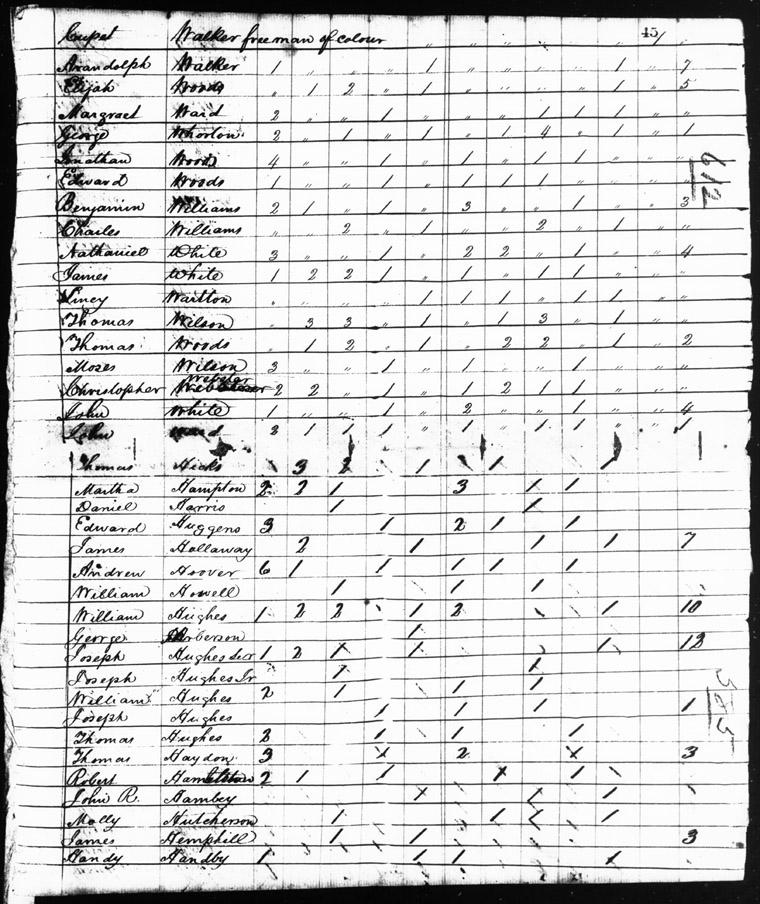 45/
Cupet Walker free man of colour " " " " " " "
Arandolph Walker 1 " " " 1 " " " " 1 " 7
Elijah Woods " 1 2 " 1 " " " " 1 " 5
Margraet Ward 2 " " 1 " " " 1 1 1 " "
George Whorton 2 " 1 " 1 " 1 4 " 1 " 1
Jonathan Woods 4 " " 1 " 1 " 1 1 " " "
Edward Woods 1 " " 1 " 1 1 1 " " "
Benjamin Williams 2 1 " 1 " 3 " " 1 " " 3
Charles Williams " " 2 " 1 " " 2 " 1 " "
Nathaniel White 3 " " 1 " 2 2 " 1 " " 4
James White 1 2 2 1 " 1 " 1 1 " "
Waitton " " " " 1 1 1 " 1 1 " "
Thomas Wilson " 3 3 " 1 " 1 3 " 1 " "
Thomas Woods " 1 2 " 1 " 2 2 " 1 " 2
Moses Wilson 3 " " 1 " 1 " " 1 " "
Christopher Webster 2 2 " 1 " 1 2 1 1 " "
John White 1 " " 1 " 2 " " 1 " " 4
John 3 1 1 1 " 1 " 1 1 " " 1
612
Thomas Hicks 3 2 1 1 1
Martha Hampton 2 2 1 3 1 1
Daniel Harris 1 1
Edward Huggens 3 1 2 1 1
James Hollaway 2 1 1 1 7
Andrew Hoover 6 1 1 1 1 1
William Howell 1 1 1
William Hughes 1 2 2 1 2 1 10
George 1
Joseph Hughes Senr 1 2 1 1 1 12
Joseph Hughes Jr 1 1
William Hughes 2 1 1 1
Joseph Hughes 1 1 1 1
Thomas Hughes 2 1 1 1
Thomas Haydon 3 x 2 x 3
Robert 2 1 1 x 1 1
John R. Hambey x 1 1
Molly Hutcherson 1 1 1 1
James Hemphill 1 1 3
Handy Handby 1 1 1 x